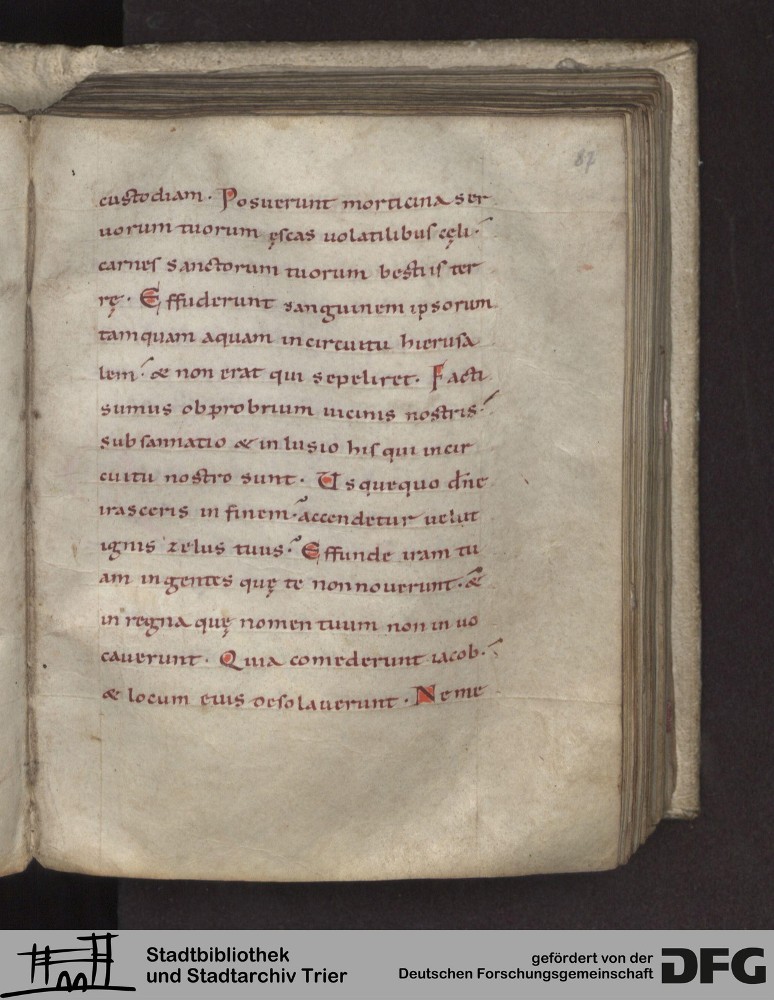 87
custodiam. Posuerunt morticina ser
uorum tuorum ęscas uolatilibus cęli.
carnes sanctorum tuorum bestiis ter
rę. Effuderunt sanguinem ipsorum
tamquam aquam incircuitu hierusa
lem. & non erat qui sepeliret. Facti
sumus obprobrium uicinis nostris.
subsannatio & inlusio his qui incir
cuitu nostro sunt. Usquequo dñe
irasceris in finem. accendetur uelut
ignis zelus tuus. Effunde iram tu
am ingentes quę te non nouerunt. &
in regna quę nomen tuum non in uo
cauerunt. Quia comederunt iacob.
& locum eius desolauerunt. Neme
Stadtbibliothek
und Stadtarchiv Trier
gefördert von der
Deutschen Forschungsgemeinschaft
DFG